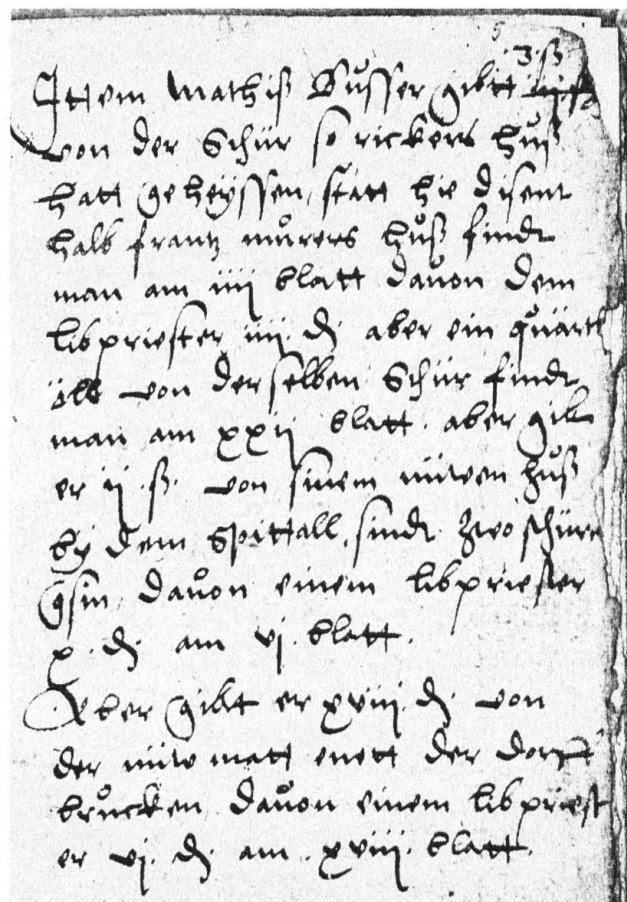 3 ß
Ittem Mathiß Bůsser gibtt
von der Schür so rickers huß
hatt geheyssen, statt hie disent
halb frantz můrers hůß findt
man am iiij blatt dauon dem
libpriester iiij. d. aber ein quärtl
öls von derselben Schür findt
man am xxij blatt. aber gibt
er ij. ß. von sinem nüwen huß
by dem Spittall, sindt zwo schüre
gsin, dauon einem libpriester
x. d. am vj. blatt.
Aber gibt er xviij. d. von
der nüw matt enett der dorff
brůcken, dauon einem libpriest
er vj. d. am. xviij. blatt.